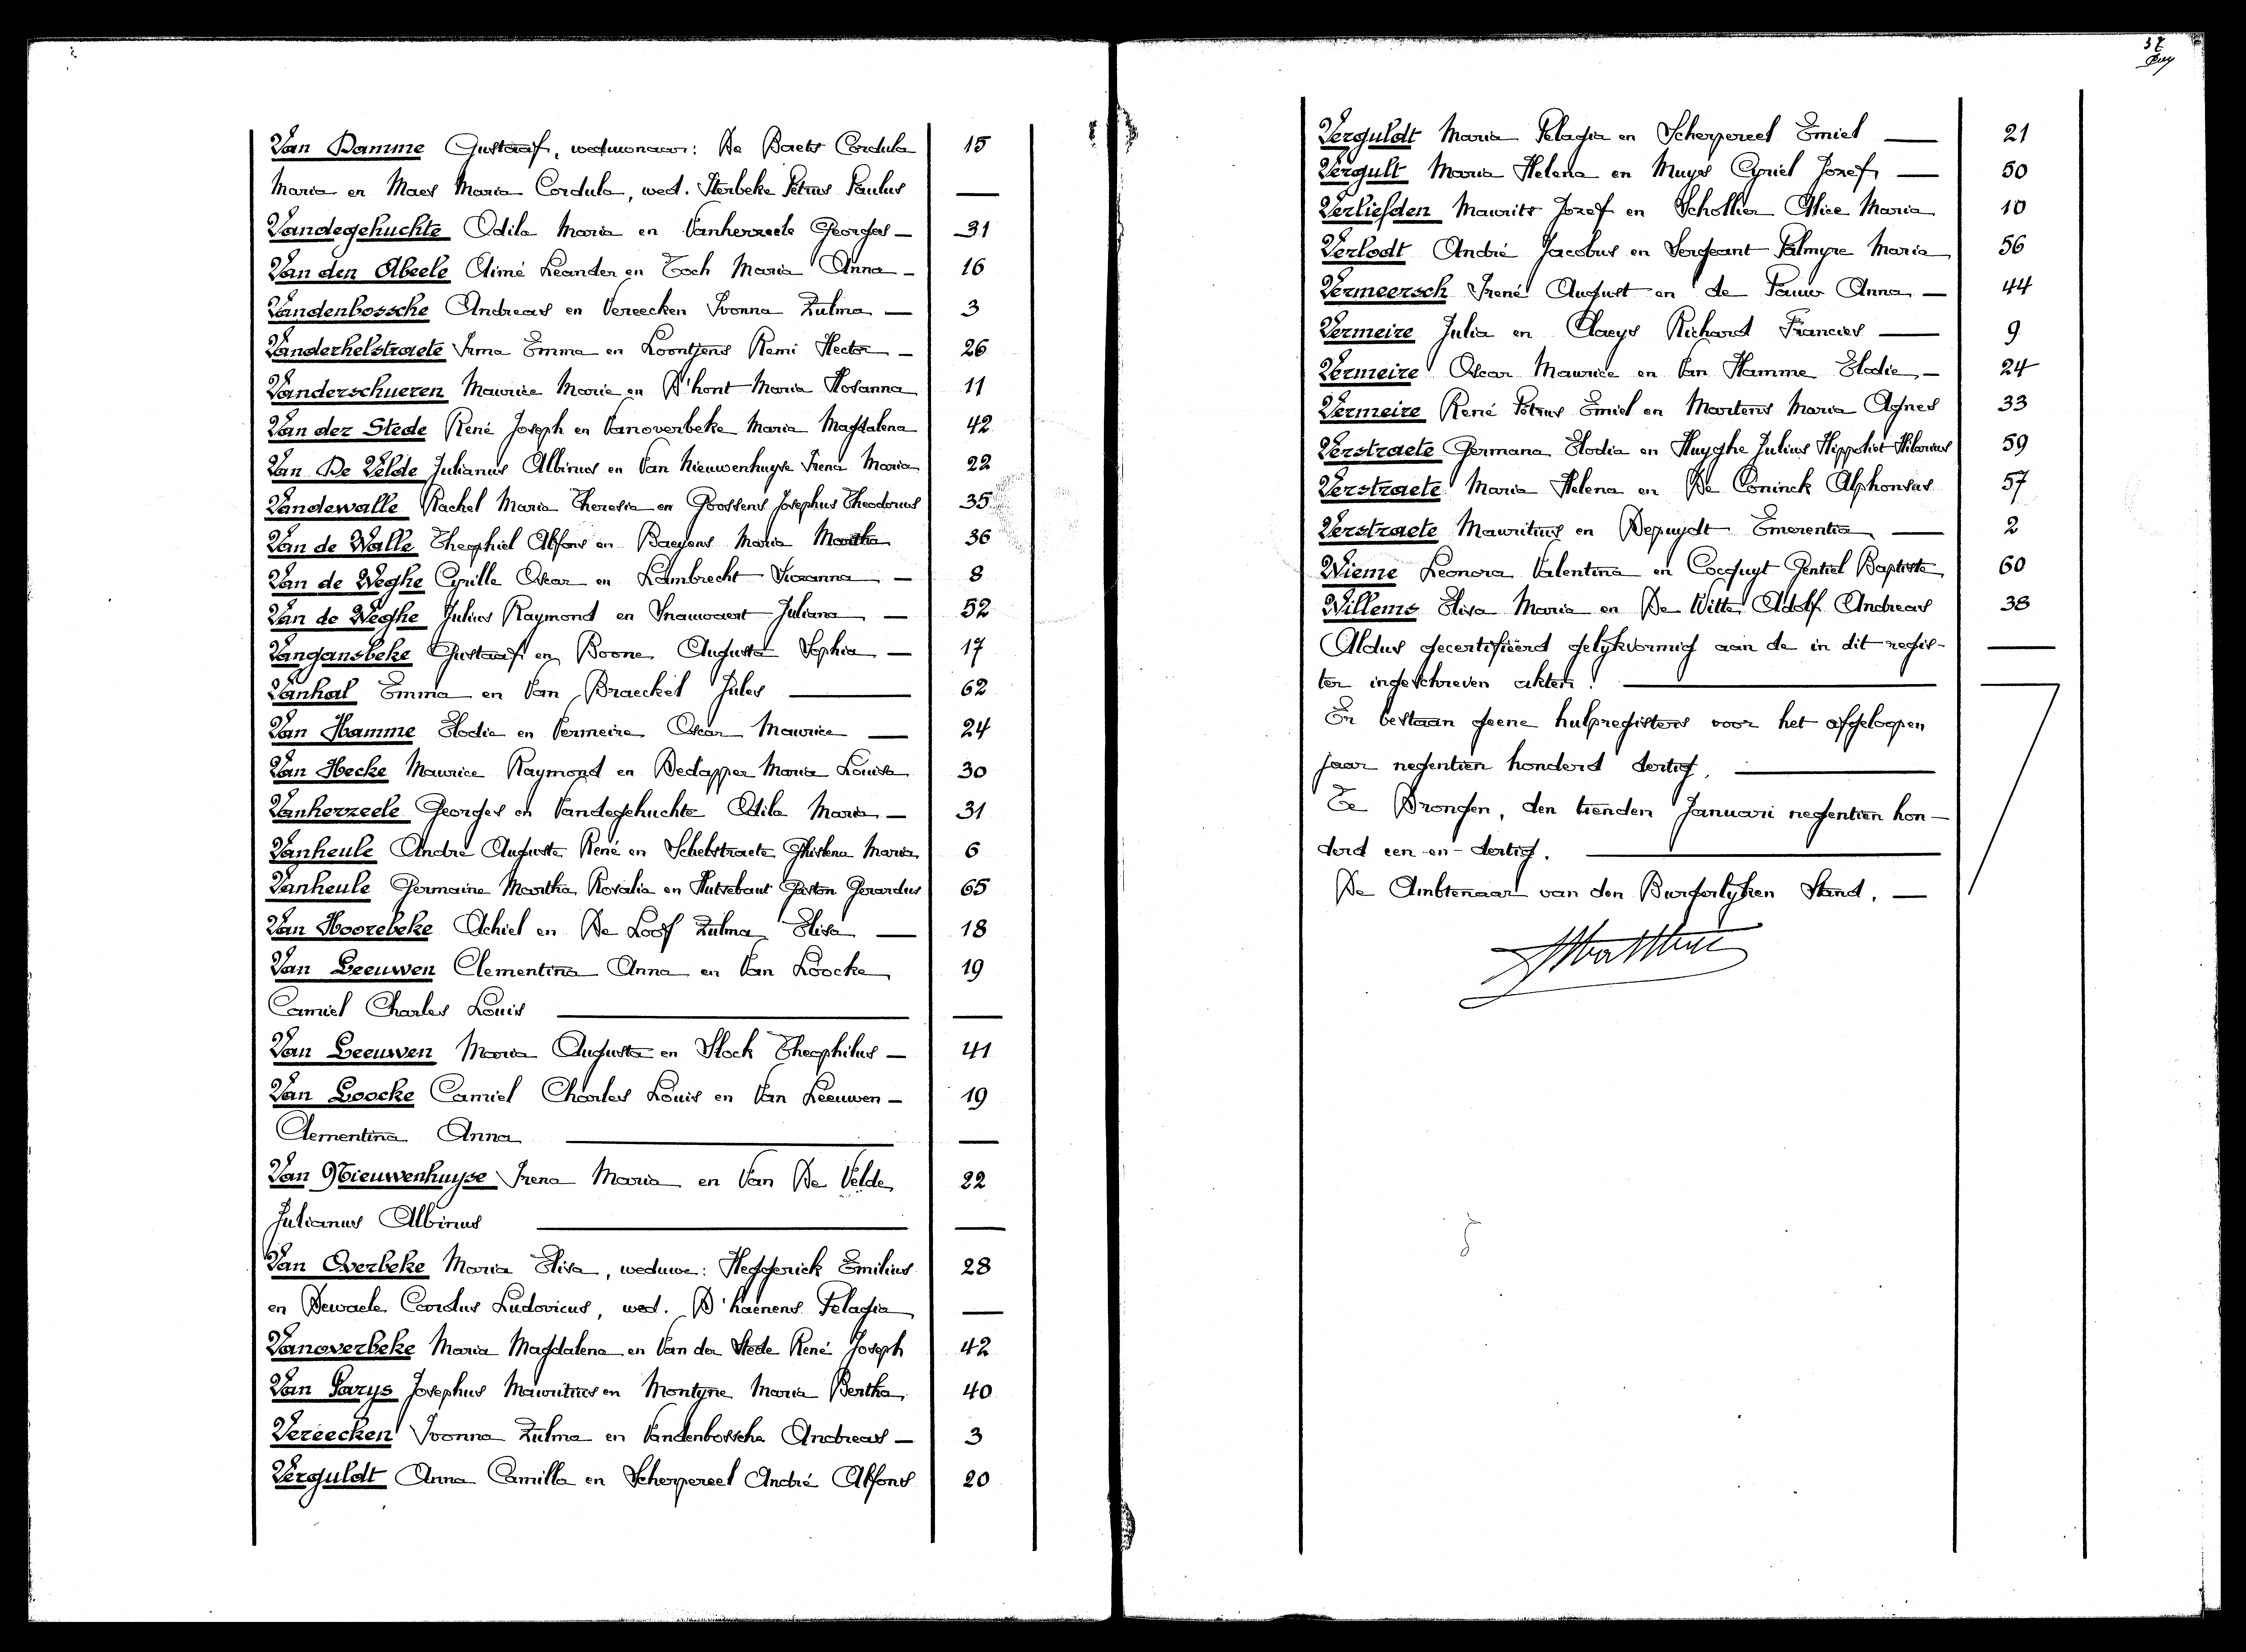 Van Damme Gustaaf, weduwnaar: De Baets Cordula 15
Maria en Maes Maria Cordula, wed. Sterbeke Petrus Paulus —
Vandegehuchte Odila Maria en Vanherzeele Georges — 31
Van den Abeele Aimé Leander en Toch Maria Anna — 16
Vandenbossche Andreas en Vereecken Ivonna Zulma — 3
Vanderhelstraete Irma Emma en Loontjens Remi Hector — 26
Vanderschueren Maurice Marie en D'hont Maria Hosanna 11
Van der Stede René Joseph en Vanoverbeke Maria Magdalena 42
Van De Velde Julianus Albinus en Van Nieuwenhuyse Irena Maria 22
Vandewalle Rachel Maria Theresia en Goossens Josephus Theodorus 35
Van de Walle Theophiel Alfons en Baeyens Maria Martha 36
Van de Weghe Cyrille Oscar en Lambrecht Suzanna — 8
Van de Weghe Julius Raymond en Inauwaert Juliana — 52
Vangansbeke Gustaaf en Boone Augusta Sophia — 17
Vanhal Emma en Van Braeckel Jules — 62
Van Hamme Elodie en Vermeire Oscar Maurice — 24
Van Hecke Maurice Raymond en Dedapper Maria Louisa 30
Vanherzeele Georges en Vandegehuchte Odila Maria — 31
Vanheule André Auguste René en Schelstraete Ghislena Maria 6
Vanheule Germaine Martha Rosalia en Hutsebaut Gaston Gerardus 65
Van Hoorebeke Achiel en De Loof Zulma Elisa — 18
Van Leeuwen Clementina Anna en Van Loocke 19
Camiel Charles Louis — —
Van Leeuwen Maria Augusta en Slock Theophilus — 41
Van Loocke Camiel Charles Louis en Van Leeuwen — 19
Clementina Anna — —
Van Nieuwenhuyse Irena Maria en Van De Velde 22
Julianus Albinus — —
Van Overbeke Maria Elisa, weduwe: Heggerick Emilius 28
en Dewaele Carolus Ludovicus, wed. D'haenens Pelagia —
Vanoverbeke Maria Magdalena en Van der Stede René Joseph 42
Van Parys Josephus Mauritius en Montyne Maria Bertha 40
Vereecken Ivonna Zulma en Vandenbossche Andreas — 3
Verguldt Anna Camilla en Scherpereel André Alfons 20
Verguldt Maria Pelagia en Scherpereel Emiel — 21
Vergult Maria Helena en Muys Cyriel Jozef — 50
Verliefden Maurits Jozef en Schollier Alice Maria 10
Verlodt André Jacobus en Sergeant Palmyre Maria 56
Vermeersch Irené August en de Pauw Anna — 44
Vermeire Julia en Claeys Richard Francies — 9
Vermeire Oscar Maurice en Van Hamme Elodie — 24
Vermeire René Petrus Emiel en Martens Maria Agnes 33
Verstraete Germana Elodia en Huyghe Julius Hippoliet Hilarius 59
Verstraete Maria Helena en De Coninck Alphonsus 57
Verstraete Mauritius en Depuydt Emerentia — 2
Wieme Leonora Valentina en Cocquyt Gentiel Baptiste 60
Willems Elisa Maria en De Witte Adolf Andreas 38
Aldus gecertifiëerd gelykvormig aan de in dit regis- —
ter ingeschreven akten. —
Er bestaan geene hulpregisters voor het afgeloopen
jaar negentien honderd dertig. —
Te Drongen, den tienden Januari negentien hon-
derd een-en-dertig. —
De Ambtenaar van den Burgerlyken Stand. —